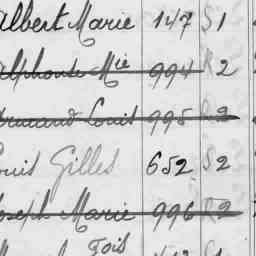 Albert Marie 147 S 1
Alphonse Mie 994 R 2
Armand Louis 995 R 2
Louis Gilles 652 S 2
Joseph Marie 996 R 2
Fois